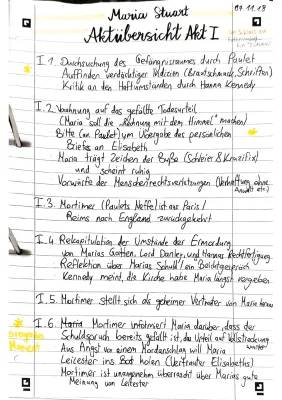 07.11.18
Maria Stuart
Aktübersicht Akt I
I.1. Durchsuchung des Gefängnisraumes durch Paulet
Auffinden verdächtiger Indizien (Brautschmuck, Schriften)
Kritik an den Haftumständen durch Hanna Kennedy
I.2. Vorahnung auf das gefällte Todesurteil
(Maria soll die „Rechnung mit dem Himmel" machen)
Bitte (an Paulet) um Übergabe des persönlichen
Briefes an Elisabeth
Maria trägt Zeichen der Buße (Schleier & Kruzifix)
und scheint ruhig
Vorwürfe der Menschenrechtsverletzungen (Verhaftung ohne
Anwalt etc.)
I.3. Mortimer (Paulets Neffe) ist aus Paris/
Reims nach England zurückgekehrt
I.4. Rekapitulation der Umstände der Ermordung
von Marias Gatten, Lord Darnley, und Hannas Rechtfertigung
Reflektion über Marias Schuld/ ein "Beichtgespräch"
Kennedy meint, die Kirche habe Maria längst vergeben
I.5. Mortimer stellt sich als geheimer Vertrauter von Maria heraus
I.6. Maria Mortimer informiert Maria darüber, dass der
Schuldspruch bereits gefällt ist, das Urteil auf Vollstreckung
wartet
Aus Angst vor einem Mordanschlag will Maria
Leicester ins Boot holen (Vertrauter Elisabeths)
Mortimer ist unangenehm überrascht über Marias gute
Meinung von Leicester
Moment